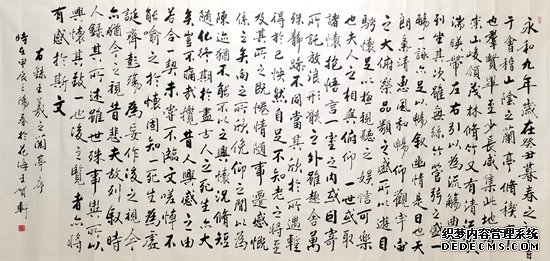 永和九年歲在癸丑暮春之初會
于會稽山陰之蘭亭脩禊事
也羣賢畢至少長咸集此地
有崇山峻領茂林脩竹又有清流激
湍暎帶左右引以為流觴曲水
列坐其次雖無絲竹管弦之盛一
觴一詠亦足以暢敘幽情是日也天
朗氣清惠風和暢仰觀宇宙
之大俯察品類之盛所以遊目
騁懷足以極視聽之娛信可樂
也夫人之相與俯仰一世或取
諸懷抱悟言一室之內或因寄
所託放浪形骸之外雖趣舍萬
殊靜躁不同當其欣於所遇蹔
得於己怏然自足不知老之將至
及其所之既惓情隨事遷感慨
係之矣向之所欣俛仰之間以為
陳迹猶不能不以之興懷況脩短
隨化終期於盡古人云死生亦大
矣豈不痛哉每攬昔人興感之由
若合一契未嘗不臨文嗟悼不
能喻之於懷固知一死生為虛
誕齊彭殤為妄作後之視今
亦猶今之視昔悲夫故列敘時
人錄其所述雖世殊事異所以
興懷其致一也後之覽者亦將
有感於斯文
右錄王羲之蘭亭序
時在甲辰之陽春於花海